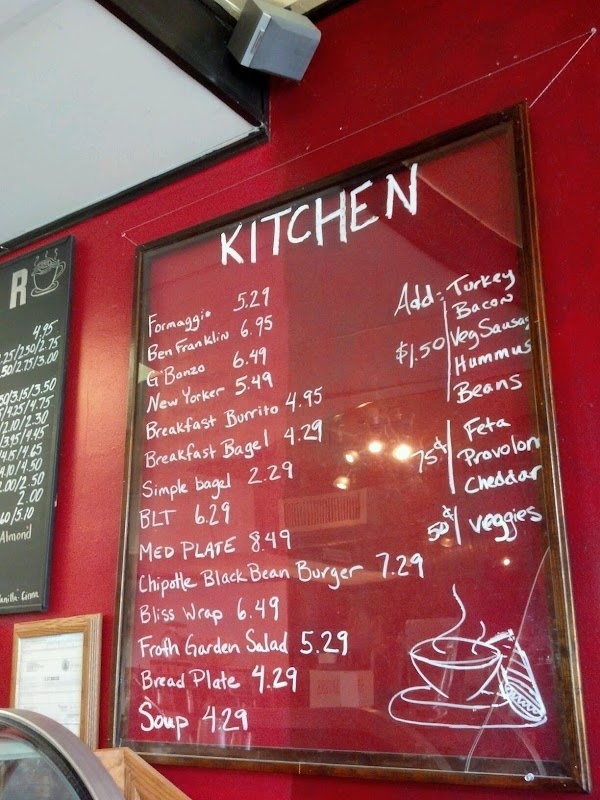 KITCHEN
Formaggio 5.29
Ben Franklin 6.95
G Bonzo 6.49
New Yorker 5.49
Breakfast Burrito 4.95
Breakfast Bagel 4.29
Simple bagel 2.29
BLT 6.29
MED PLATE 8.49
Chipotle Black Bean Burger 7.29
Bliss Wrap 6.49
Froth Garden Salad 5.29
Bread Plate 4.29
Soup 4.29
Add: Turkey
Bacon
$1.50 Veg Sausag
Hummus
Beans
Feta
75¢ Provolon
Cheddar
50¢ veggies
R
4.95
.25/2.50/2.75
.50/2.75/3.00
/3.15/3.50
/4.25/4.75
2.10/2.30
/3.95/4.45
4.15/4.65
4.10/4.50
2.00/2.50
2.00
/5.10
Almond